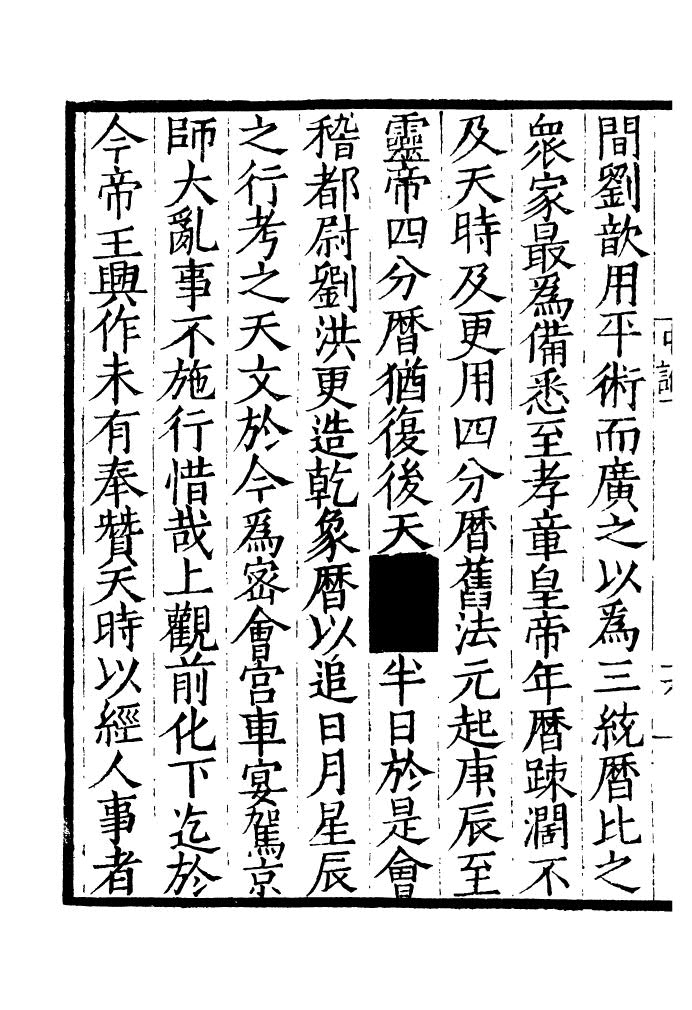 間劉歆用平術而廣之以爲三統曆比之
衆家最爲備悉至孝章皇帝年曆踈濶不
及天時及更用四分曆舊法元起庚辰至
靈帝四分曆猶復後天半日於是會
稽都尉劉洪更造乾象曆以追日月星辰
之行考之天文於今爲密會宫車宴駕京
師大亂事不施行惜哉上觀前化下迄於
今帝王興作未有奉贊天時以經人事者